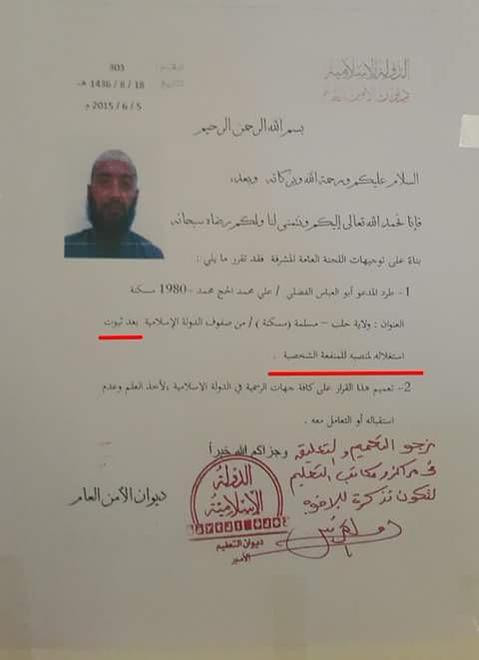 الدولة الإسلامية
الرقم 303
التاريخ 18 / 8 / 1436 هـ
5 / 6 / 2015 م
بسم الله الرحمن الرحيم
السلام عليكم ورحمة الله وبركاته وبعد،
فإنا نحمد الله تعالى إليكم ونتمنى لنا ولكم رضاه سبحانه
بناءً على توجيهات اللجنة العامة المشرفة فقد تقرر ما يلي :
1- طرد المدعو أبو العباس الفضلي / علي محمد الحج محمد -1980 مسكنة
العنوان : ولاية حلب – مسلمة (مسكنة) / من صفوف الدولة الإسلامية بعد ثبوت
استغلاله لمنصبه للمنفعة الشخصية .
2- تعميم هذا القرار على كافة جهات الرسمية في الدولة الاسلامية ،لأخذ العلم وعدم
استقباله أو التعامل معه .
وجزاكم الله خيراً
نرجو التعميم والتعليق
في مراكز ومكاتب التعليم
لتكون تذكرة للإخوة
ديوان الأمن العام
الدولة
الإسلامية
ديوان التعليم
الأمير